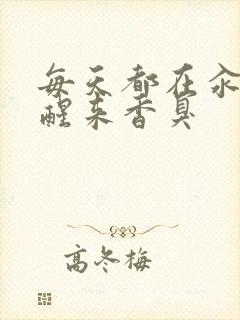 每天都在汆
醒来香臭
高冬梅